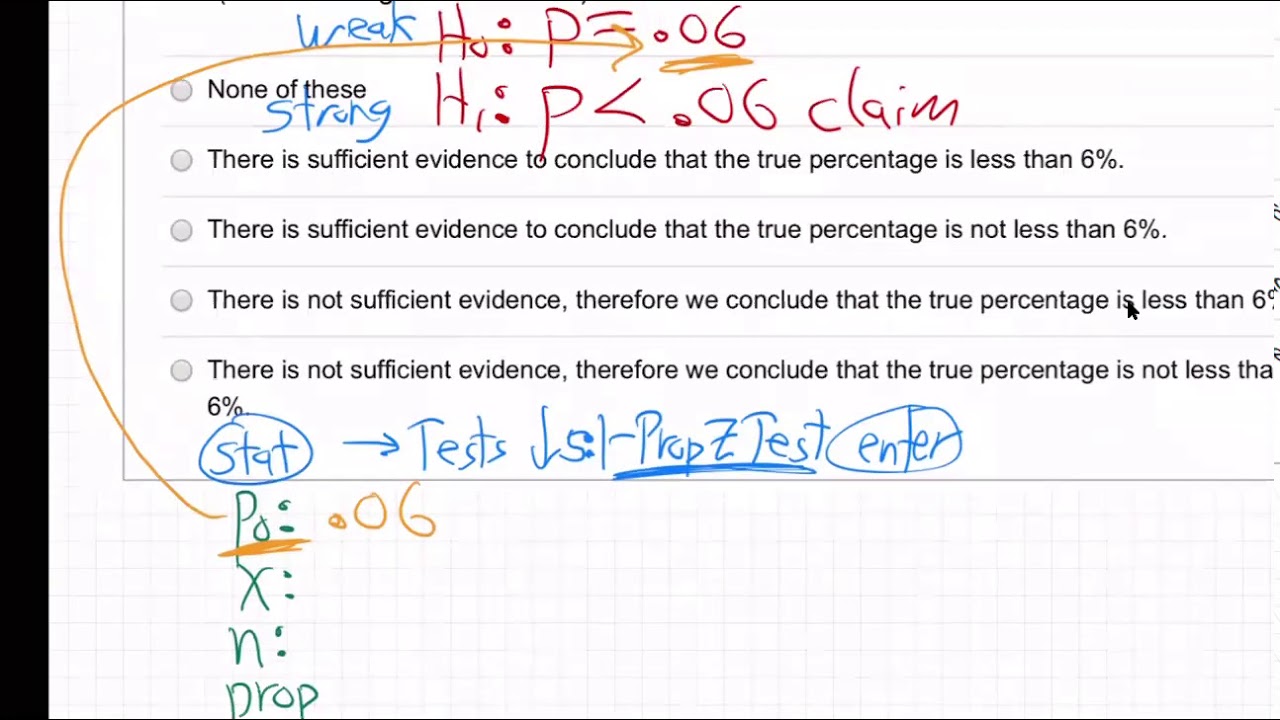 weak H₀: p = .06
None of these
strong H₁: p < .06 claim
There is sufficient evidence to conclude that the true percentage is less than 6%.
There is sufficient evidence to conclude that the true percentage is not less than 6%.
There is not sufficient evidence, therefore we conclude that the true percentage is less than 6
There is not sufficient evidence, therefore we conclude that the true percentage is not less tha
6%.
Stat → Tests ↓ 5:1-PropZTest enter
P₀: .06
X:
n:
prop